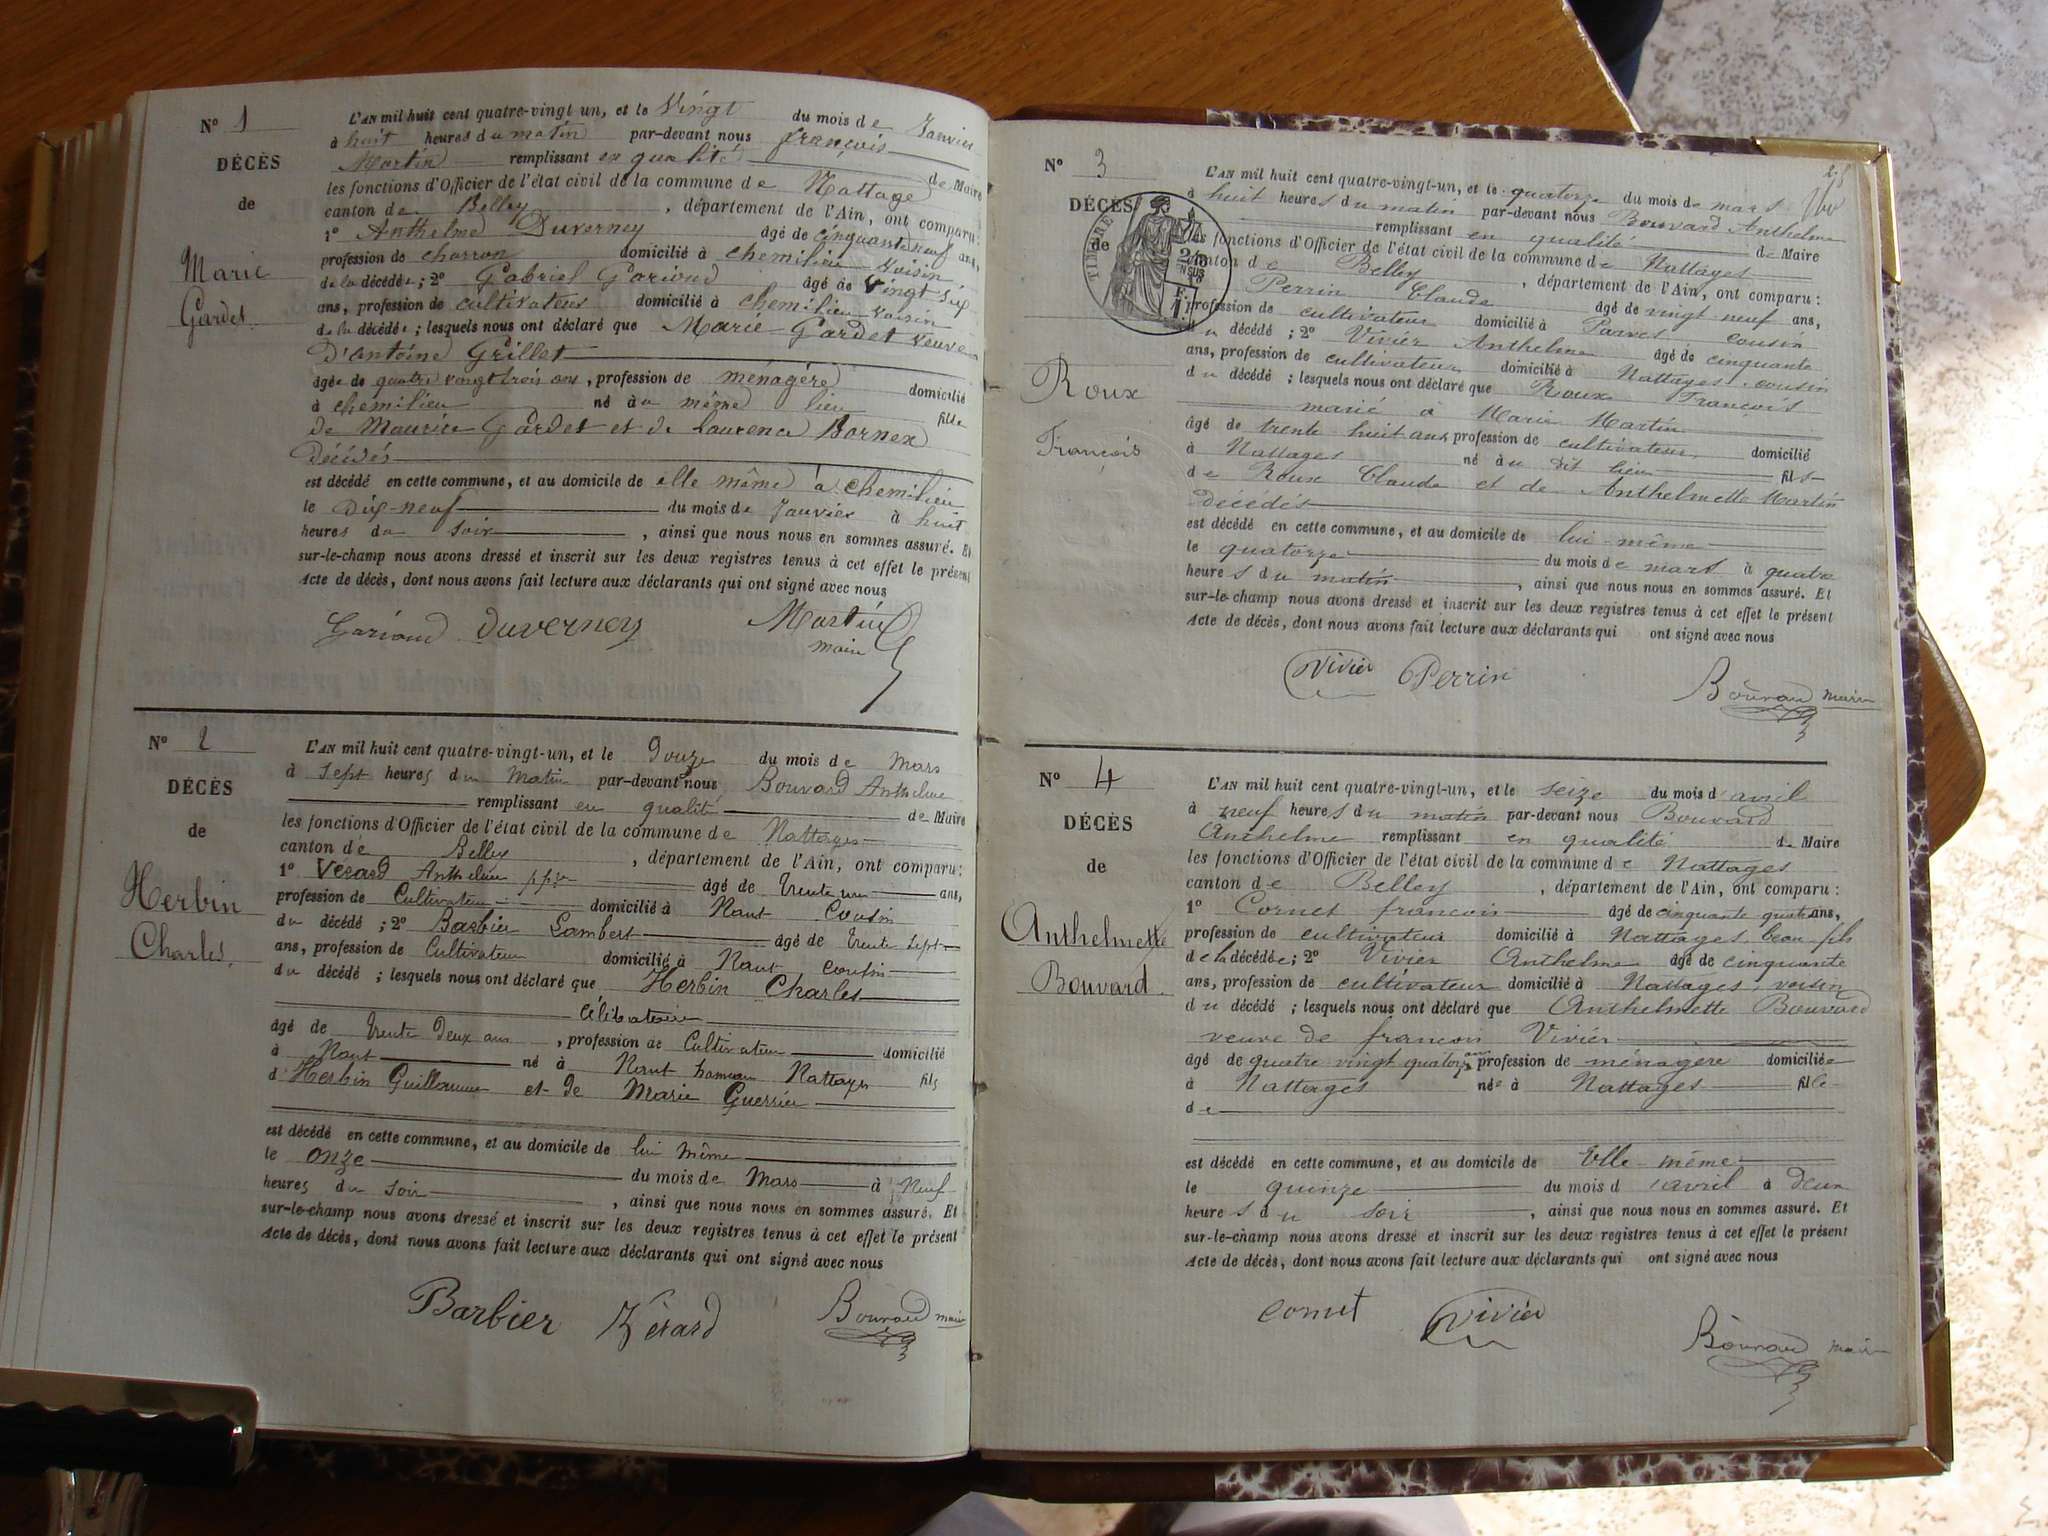 N° 1
DÉCÈS
de
Marie
Gardet
L'AN mil huit cent quatre-vingt un, et le Vingt du mois de Janvier
à huit heures du matin par-devant nous françois
Martin remplissant en qualité de Maire
les fonctions d'Officier de l'état civil de la commune de Nattage
canton de Belley, département de l'Ain, ont comparu:
1° Anthelme Duverney âgé de cinquante neuf ans,
profession de charron domicilié à chemilieu voisin
de la décédée; 2° Gabriel Garioud âgé de vingt six
ans, profession de cultivateur domicilié à chemilieu voisin
de la décédée; lesquels nous ont déclaré que Marie Gardet veuve
D'antoine Grillet
âgée de quatre vingt trois ans, profession de ménagère domicilié
à chemilieu né àu même lieu fille
de Maurice Gardet et de Laurence Bornex
Décédés
est décédé en cette commune, et au domicile de elle même à chemilieu
le Dix-neuf du mois de Janvier à huit
heures du soir, ainsi que nous nous en sommes assuré. Et
sur-le-champ nous avons dressé et inscrit sur les deux registres tenus à cet effet le présent
Acte de décès, dont nous avons fait lecture aux déclarants qui ont signé avec nous
Garioud Duverney Martin
maire
N° 2
DÉCÈS
de
Herbin
Charles
L'AN mil huit cent quatre-vingt-un, et le Douze du mois de Mars
à sept heures du Matin par-devant nous Bouvard Anthelme
remplissant en qualité de Maire
les fonctions d'Officier de l'état civil de la commune de Nattages
canton de Belley, département de l'Ain, ont comparu:
1° Vérard Anthelme âgé de trente un ans,
profession de Cultivateur domicilié à Nant Cousin
du décédé; 2° Barbier Lambert âgé de trente sept
ans, profession de Cultivateur domicilié à Nant cousin
du décédé; lesquels nous ont déclaré que Herbin Charles
Célibataire
âgé de trente deux ans, profession de Cultivateur domicilié
à Nant né à Nant hameau Nattages fils
d'Herbin Guillaume et de Marie Guerrier
est décédé en cette commune, et au domicile de lui même
le onze du mois de Mars à Neuf
heures du soir, ainsi que nous nous en sommes assuré. Et
sur-le-champ nous avons dressé et inscrit sur les deux registres tenus à cet effet le présent
Acte de décès, dont nous avons fait lecture aux déclarants qui ont signé avec nous
Barbier Vérard Bouvard maire
N° 3
DÉCÈS
de
TIMBRE
Roux
François
L'AN mil huit cent quatre-vingt-un, et le quatorze du mois de mars
à huit heures du matin par-devant nous Bouvard Anthelme
remplissant en qualité de Maire
les fonctions d'Officier de l'état civil de la commune de Nattages
canton de Belley, département de l'Ain, ont comparu:
Perrin Claude âgé de vingt neuf ans,
profession de cultivateur domicilié à Parves cousin
du décédé; 2° Vivier Anthelme âgé de cinquante
ans, profession de cultivateur domicilié à Nattages cousin
du décédé; lesquels nous ont déclaré que Roux François
marié à Marie Martin
âgé de trente huit ans profession de cultivateur domicilié
à Nattages né àu dit lieu fils
de Roux Claude et de Anthelmette Martin
Décédés
est décédé en cette commune, et au domicile de lui-même
le quatorze du mois de mars à quatre
heures du matin, ainsi que nous nous en sommes assuré. Et
sur-le-champ nous avons dressé et inscrit sur les deux registres tenus à cet effet le présent
Acte de décès, dont nous avons fait lecture aux déclarants qui ont signé avec nous
Vivier Perrin Bouvard maire
N° 4
DÉCÈS
de
Anthelmette
Bouvard
L'AN mil huit cent quatre-vingt-un, et le seize du mois d'avril
à neuf heures du matin par-devant nous Bouvard
Anthelme remplissant en qualité de Maire
les fonctions d'Officier de l'état civil de la commune de Nattages
canton de Belley, département de l'Ain, ont comparu:
1° Cornet françois âgé de cinquante quatre ans,
profession de cultivateur domicilié à Nattages beau fils
de la décédée; 2° Vivier Anthelme âgé de cinquante
ans, profession de cultivateur domicilié à Nattages voisin
du décédé; lesquels nous ont déclaré que Anthelmette Bouvard
veuve de françois Vivier
âgé de quatre vingt quatorze ans profession de ménagère domiciliée
à Nattages née à Nattages fille
de
est décédé en cette commune, et au domicile de Elle-même
le quinze du mois d'avril à deux
heures du soir, ainsi que nous nous en sommes assuré. Et
sur-le-champ nous avons dressé et inscrit sur les deux registres tenus à cet effet le présent
Acte de décès, dont nous avons fait lecture aux déclarants qui ont signé avec nous
Cornet Vivier Bouvard maire